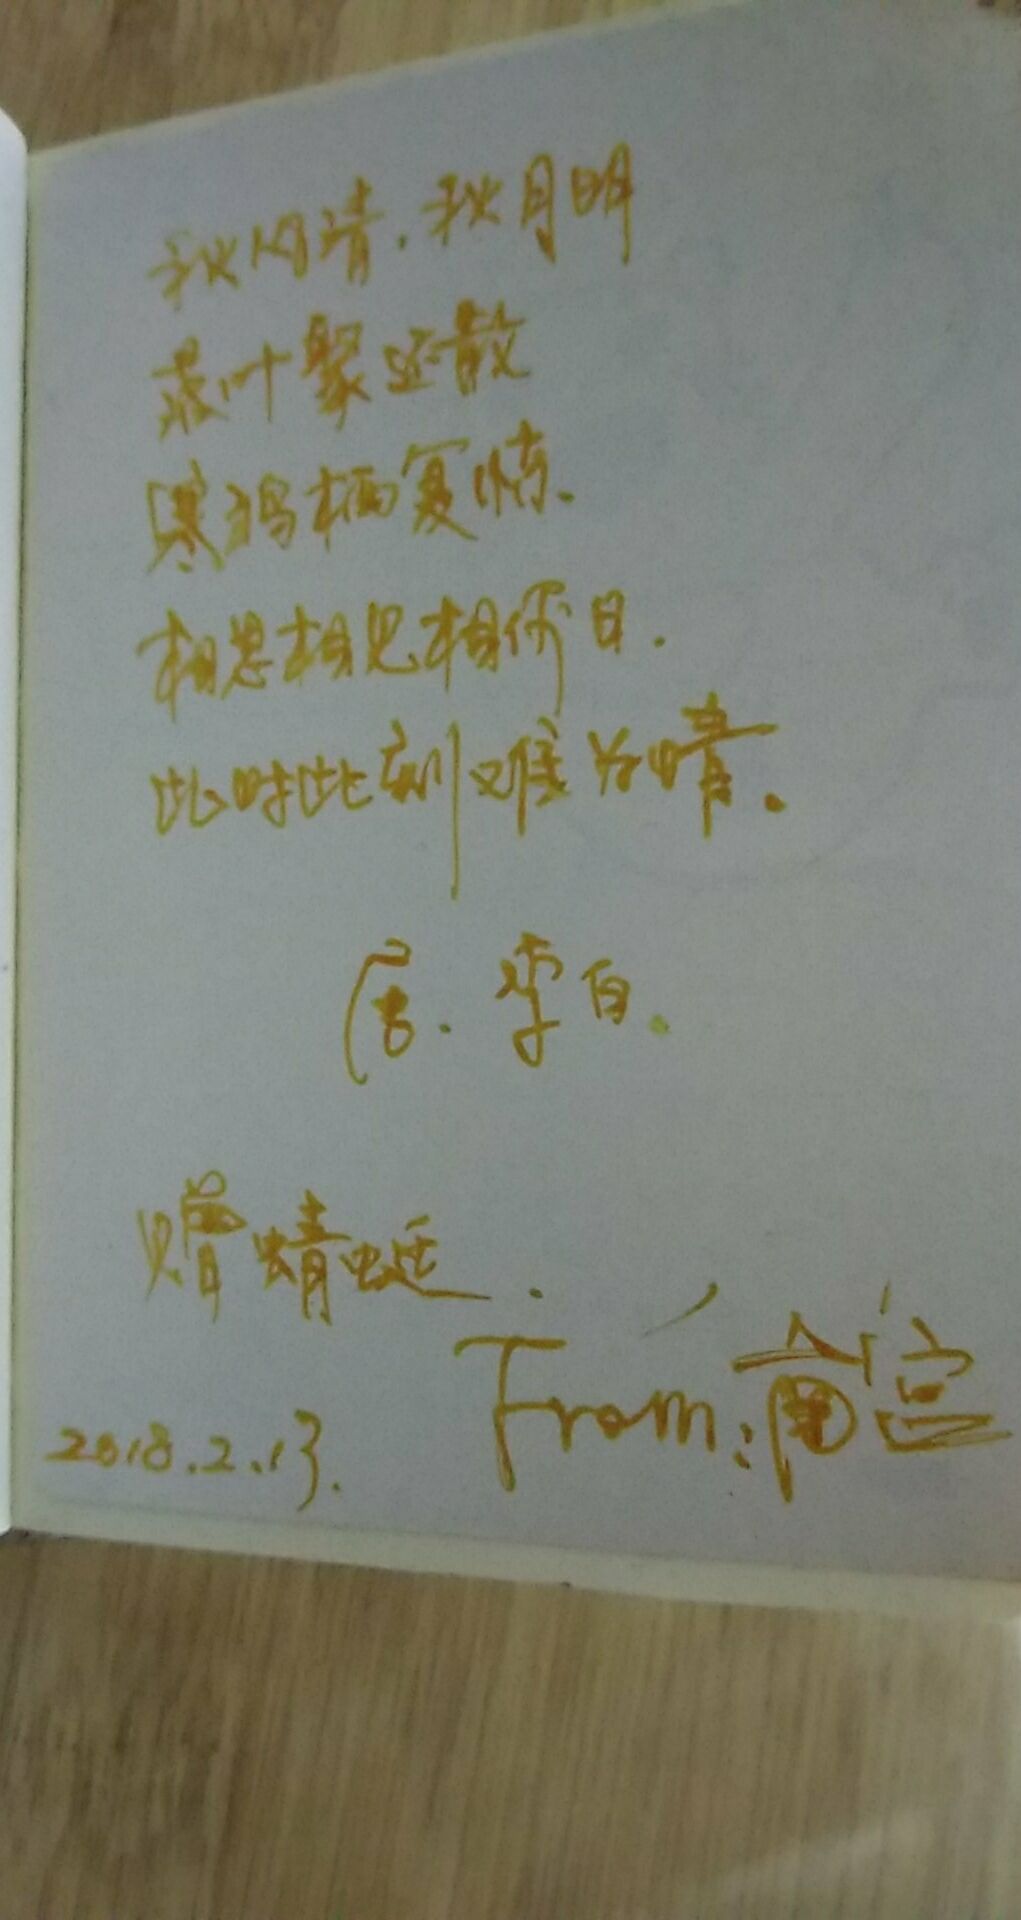 秋风清，秋月明
落叶聚还散
寒鸦栖复惊.
相思相见相你日.
此时此刻难为情.
唐.李白.
赠蜻蜓.
From:南宫
2018.2.13.